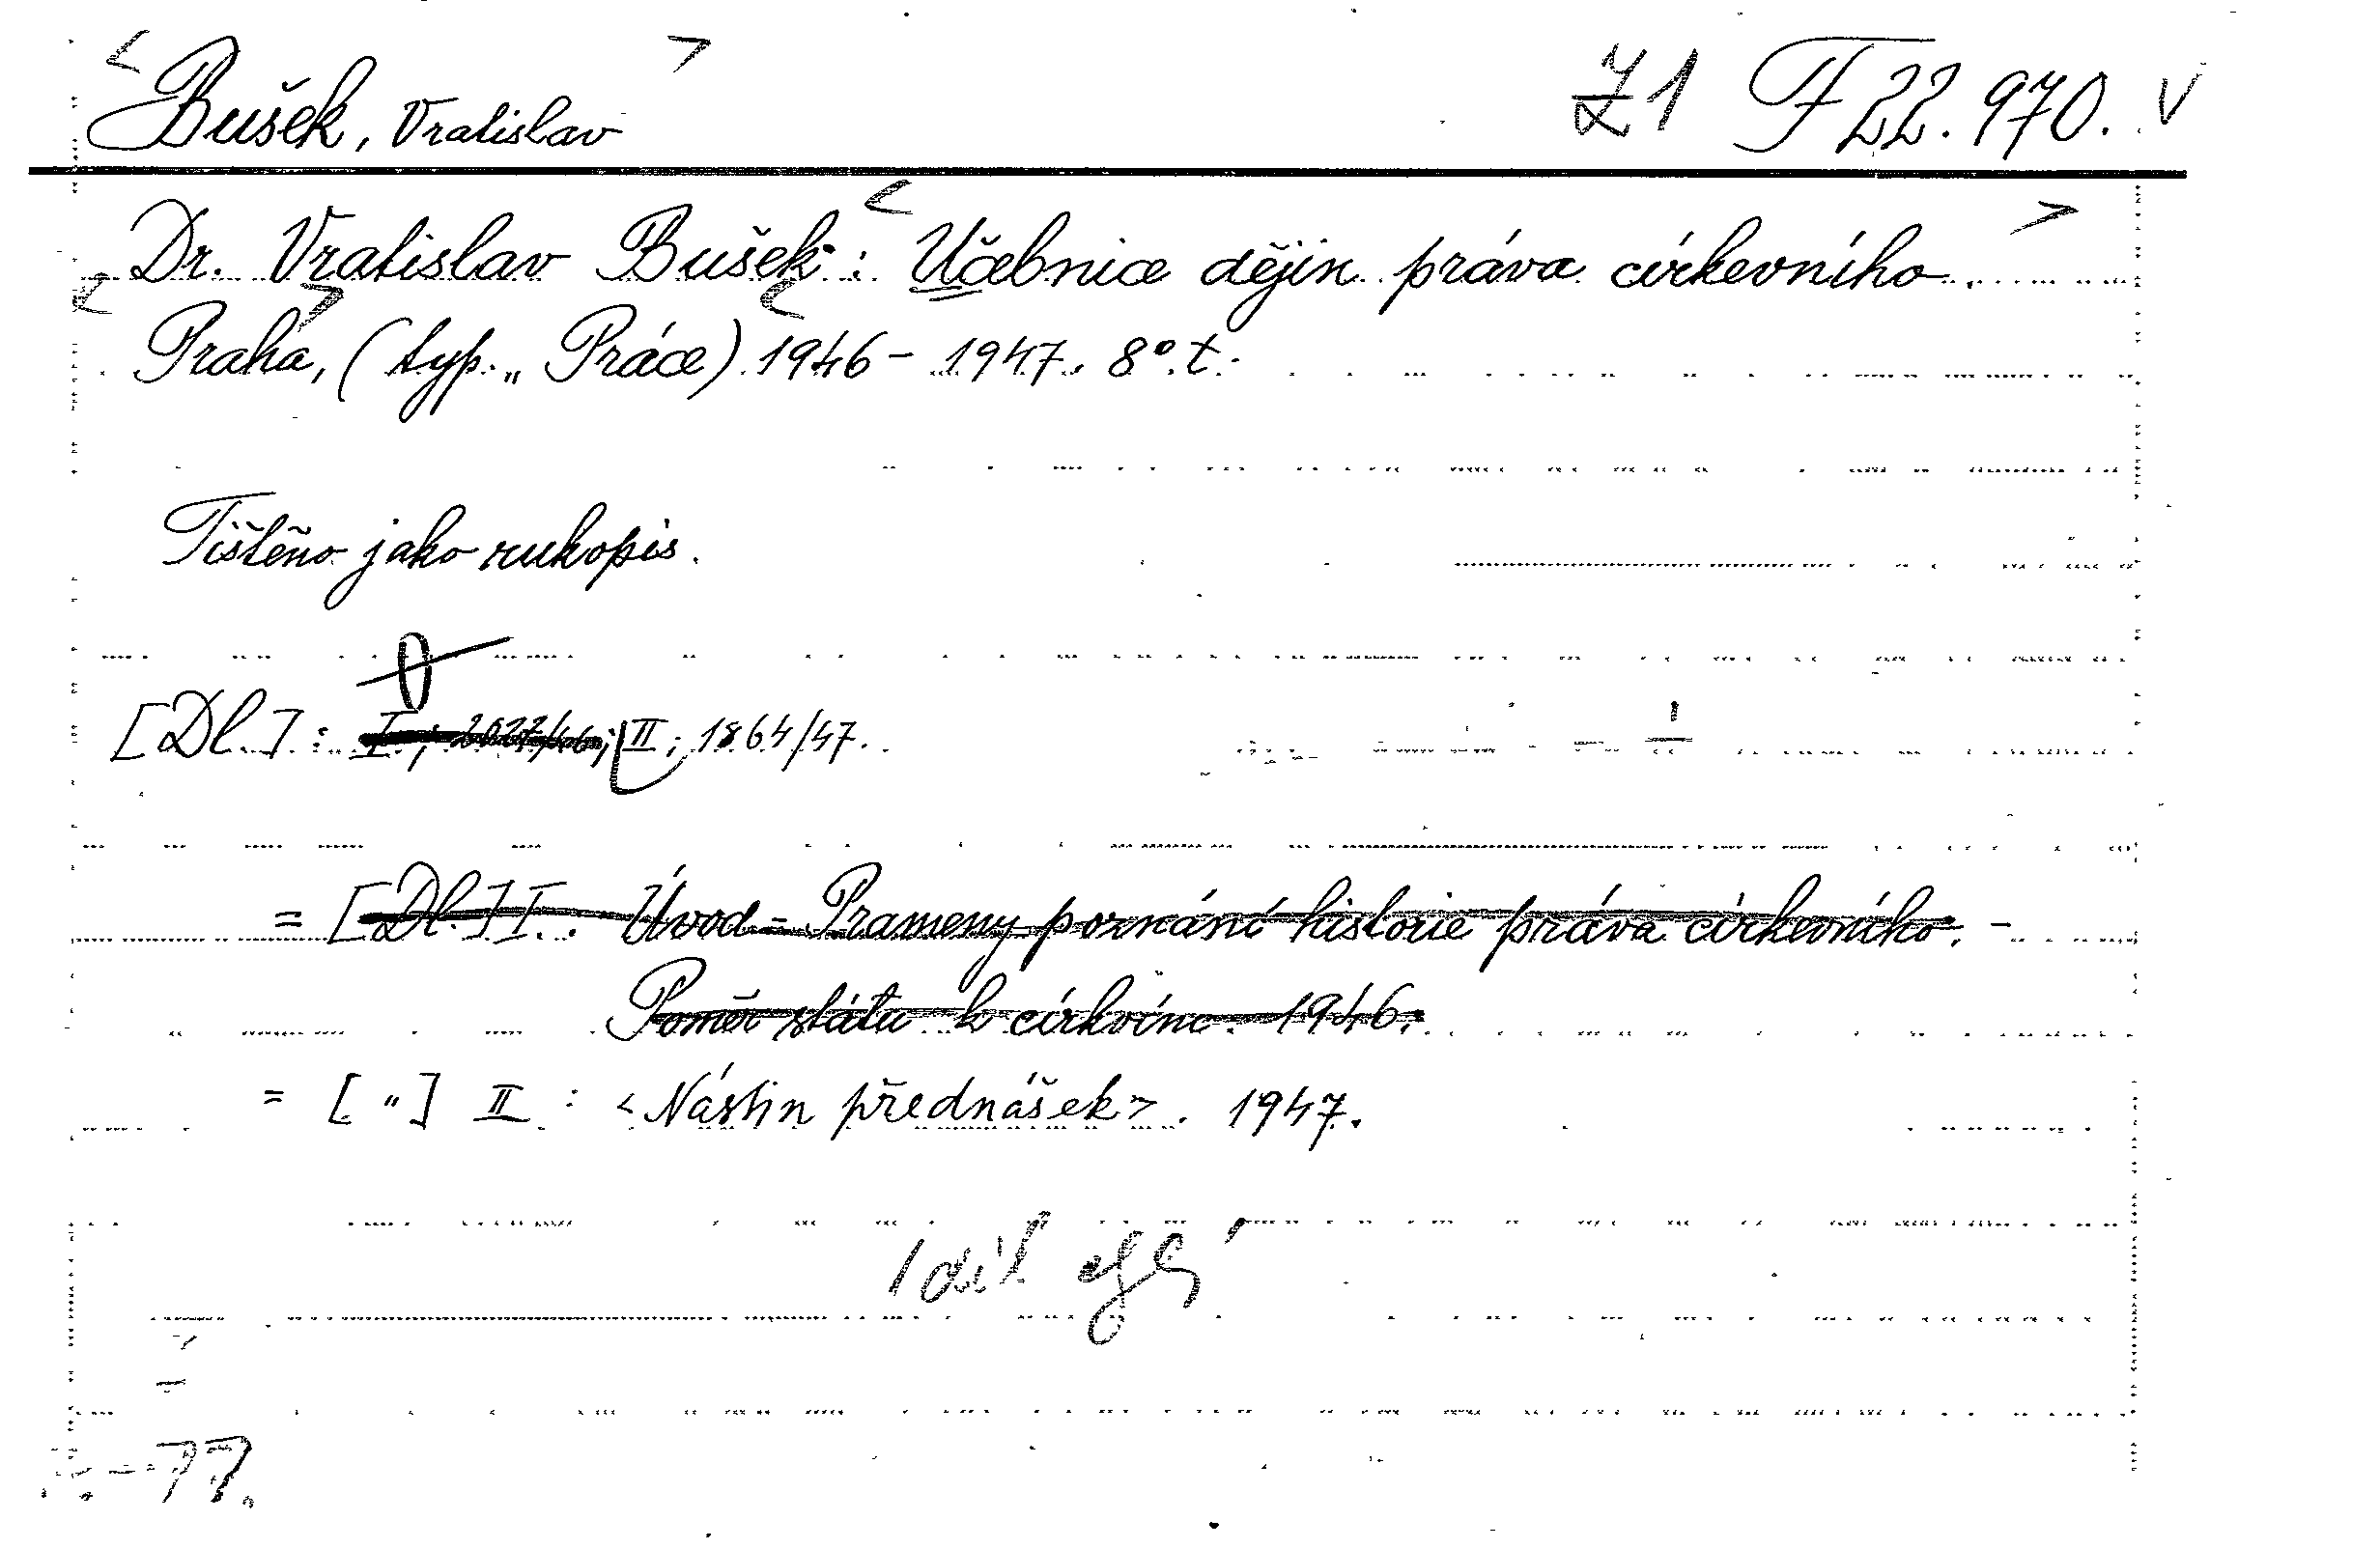 < Bušek, Vratislav > Z1 F 22.970. V
Dr. Vratislav Bušek : < Učebnice dějin práva církevního. >
< Praha, > ( typ. „ Práce ) < 1946 - 1947. 8° t.
Tištěno jako rukopis.
[Dl.] : I.; 2027/46; II; 1864/47.
= [Dl.] I. : Úvod - Prameny poznání historie práva církevního. -
Poměr státu k církvím. 1946.
= [ „ ] II : < Nástin přednášek > . 1947.
1 díl
77.